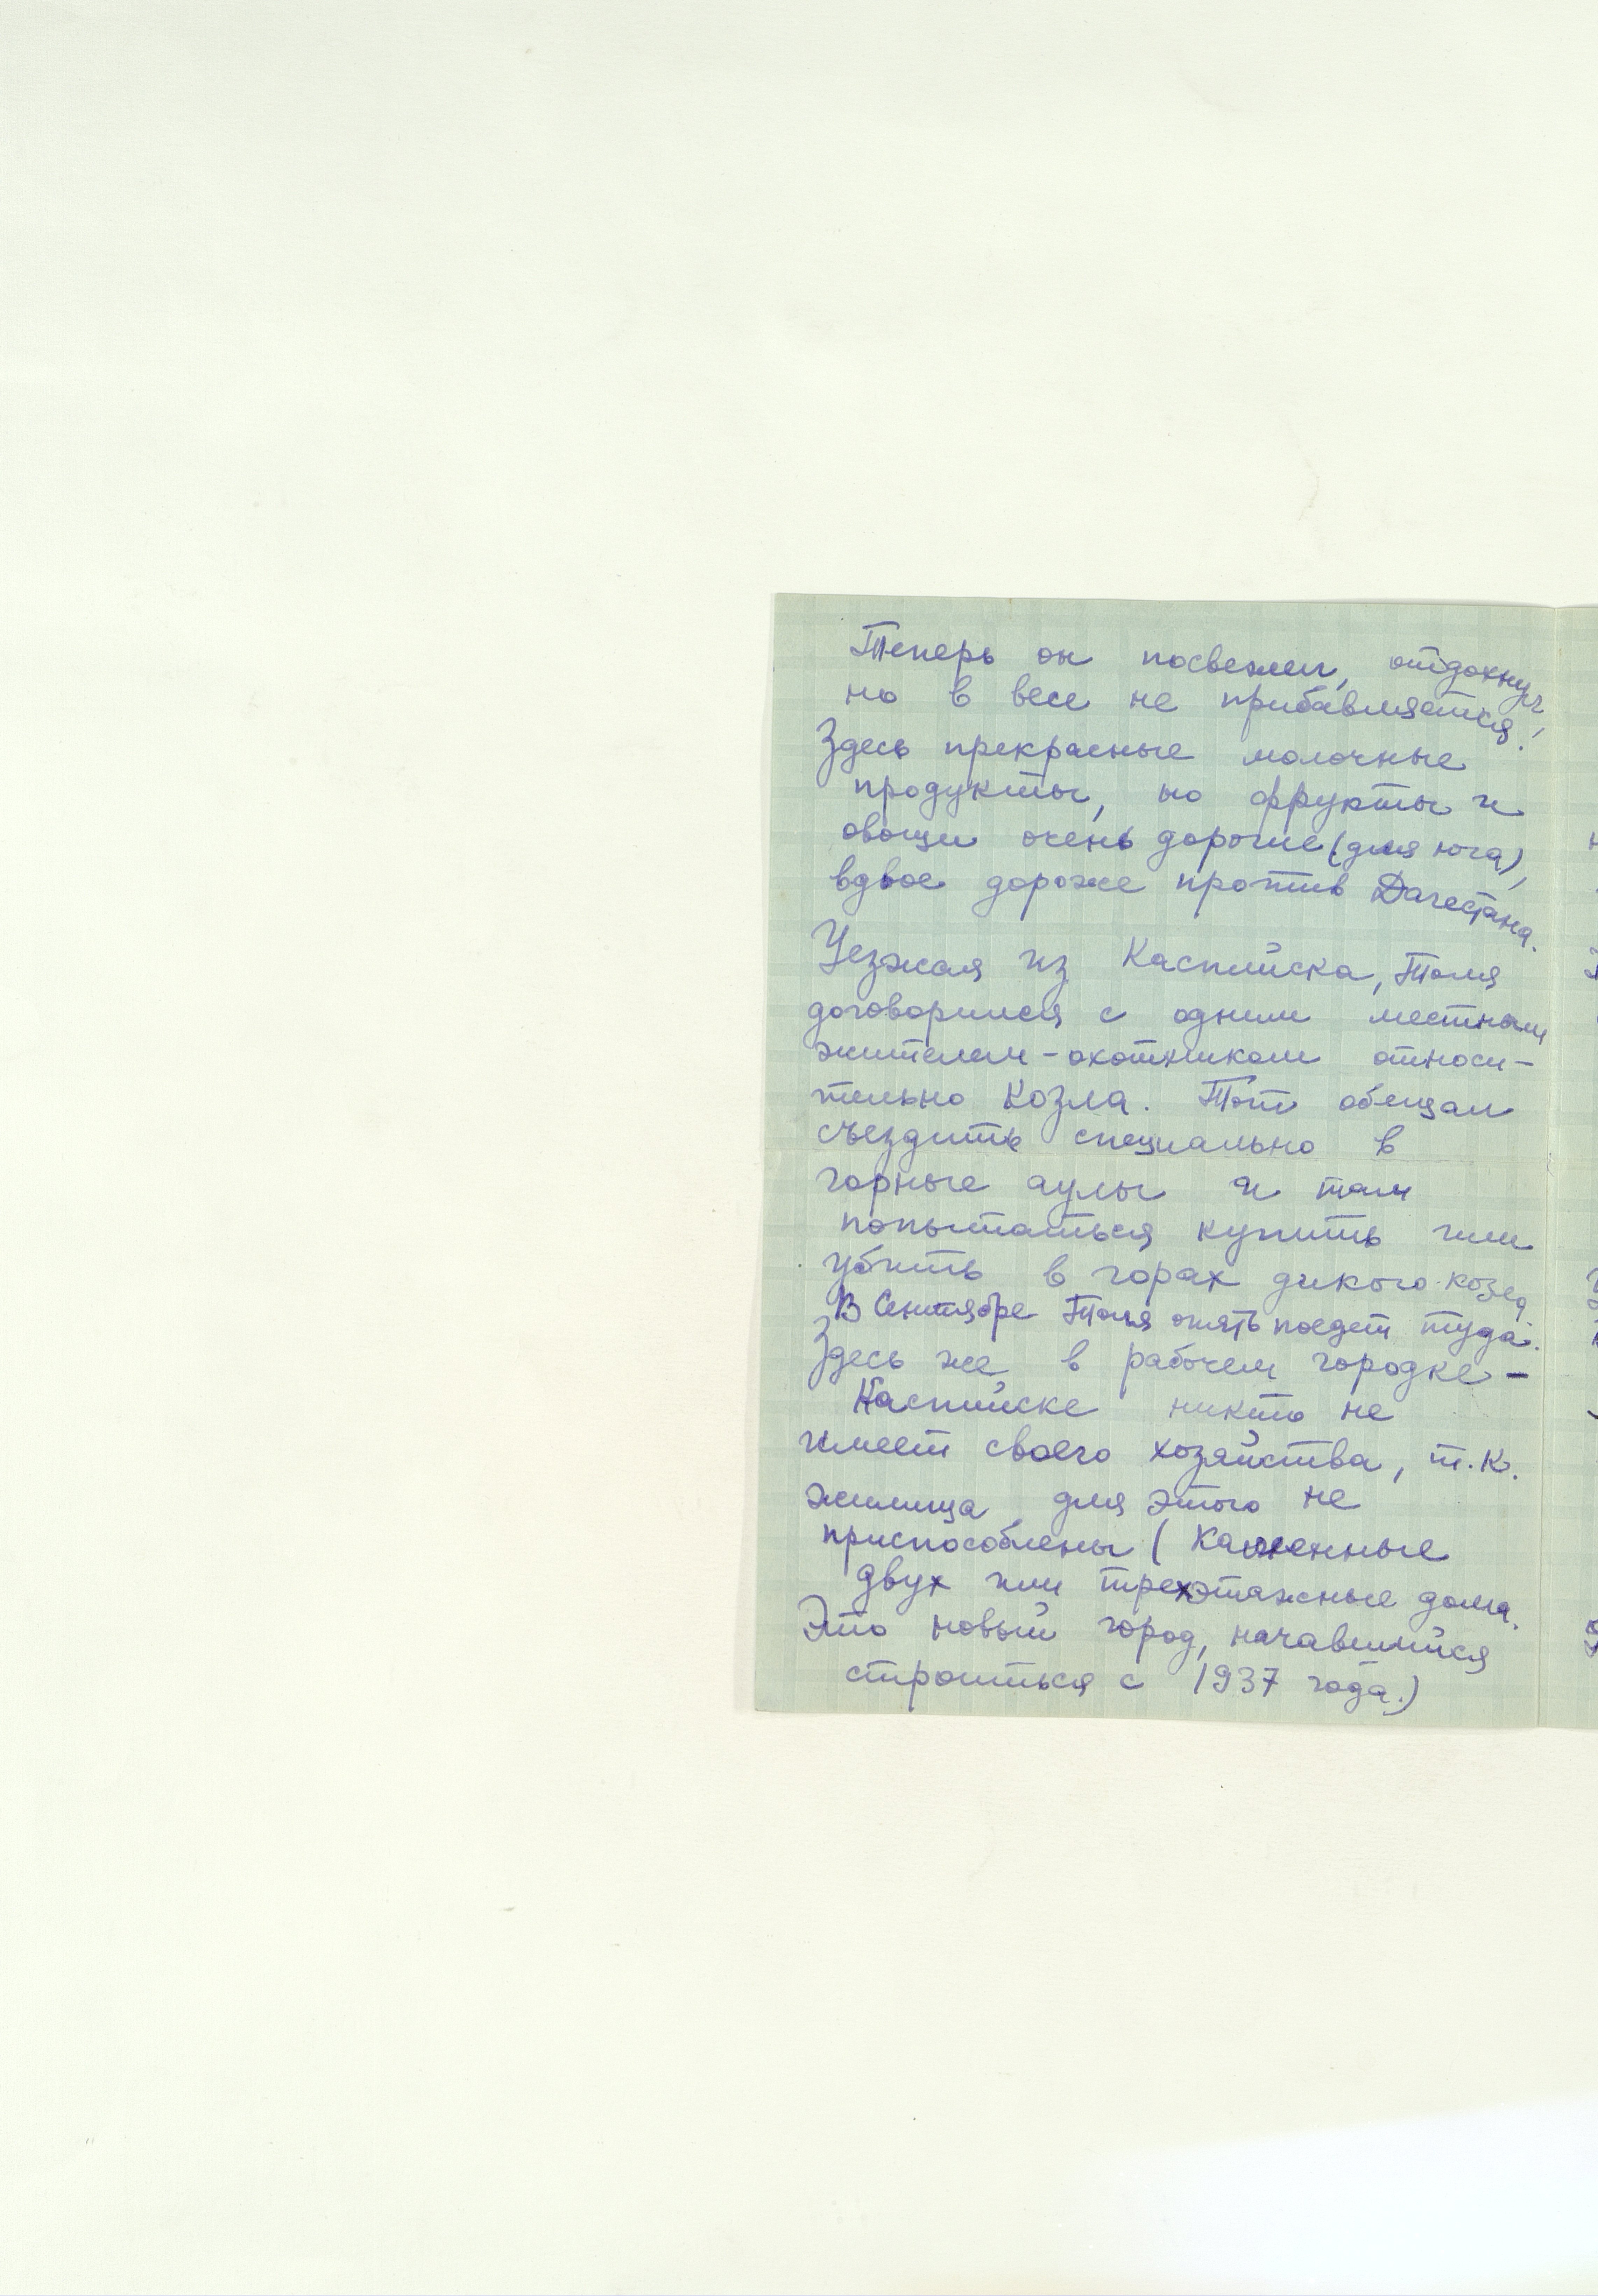 Теперь он посвежел, отдохнул,
но в весе не прибавляется!
Здесь прекрасные молочные
продукты, но фрукты и
овощи очень дорогие (для юга),
вдвое дороже против Дагестана.
Уезжая из Каспийска, Толя
договорился с одним местным
жителем-охотником относи-
тельно козла. Тот обещал
съездить специально в
горные аулы и там
попытаться купить или
убить в горах дикого козла
В Сентябре Толя опять поедет туда.
Здесь же в рабочем городке -
Каспийске никто не
имеет своего хозяйства, т.к.
жилища для этого не
приспособлены (каменные
двух или трехэтажные дома.
Это новый город, начавшийся
строиться с 1937 года.)